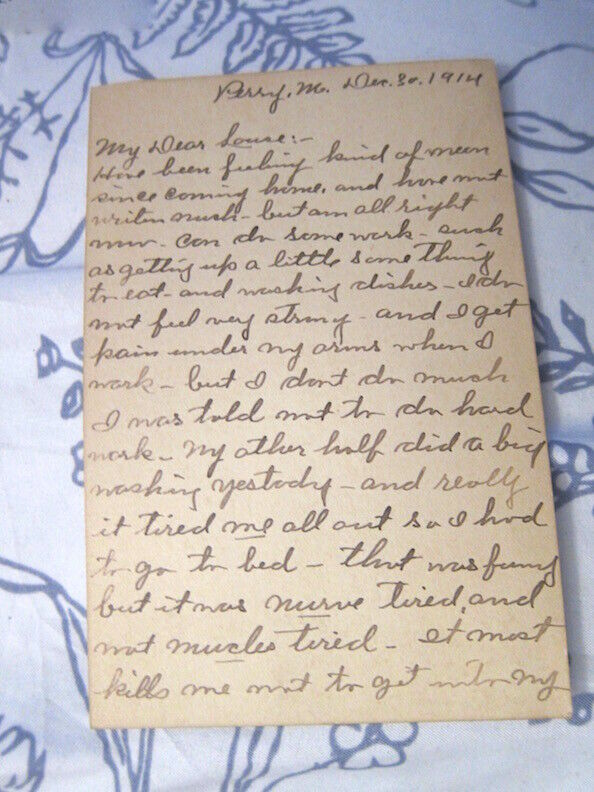 Perry, Me. Dec. 30, 1914
My Dear Louse:-
Have been feeling kind of mean
since coming home, and have not
writen much - but am all right
now - Can do some work - such
as getting up a little some thing
to eat - and washing dishes - I do
not feel very strong - and I get
pain under my arms when I
work - but I dont do much
I was told not to do hard
work - My other half did a big
washing yestody - and really
it tired me all out so I had
to go to bed - that was funny
but it was nurve tired, and
not mucles tired - It most
kills me not to get into my